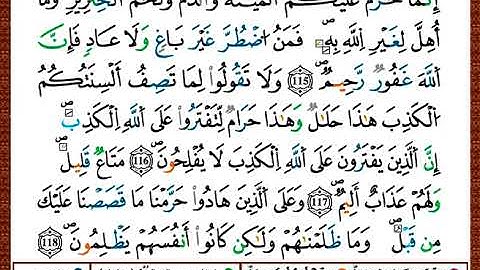 إِنَّمَا حَرَّمَ عَلَيْكُمُ الْمَيْتَةَ وَالدَّمَ وَلَحْمَ الْخِنْزِيرِ وَمَا
أُهِلَّ لِغَيْرِ اللَّهِ بِهِ ۖ فَمَنُ اضْطُرَّ غَيْرَ بَاغٍ وَلَا عَادٍ فَإِنَّ
اللَّهَ غَفُورٌ رَّحِيمٌ ﴿115﴾ وَلَا تَقُولُوا لِمَا تَصِفُ أَلْسِنَتُكُمُ
الْكَذِبَ هَٰذَا حَلَالٌ وَهَٰذَا حَرَامٌ لِّتَفْتَرُوا عَلَى اللَّهِ الْكَذِبَ ۚ
إِنَّ الَّذِينَ يَفْتَرُونَ عَلَى اللَّهِ الْكَذِبَ لَا يُفْلِحُونَ ۖ ﴿116﴾ مَتَاعٌ قَلِيلٌ
وَلَهُمْ عَذَابٌ أَلِيمٌ ۖ ﴿117﴾ وَعَلَى الَّذِينَ هَادُوا حَرَّمْنَا مَا قَصَصْنَا عَلَيْكَ
مِن قَبْلُ ۖ وَمَا ظَلَمْنَاهُمْ وَلَٰكِن كَانُوا أَنفُسَهُمْ يَظْلِمُونَ ۖ ﴿118﴾